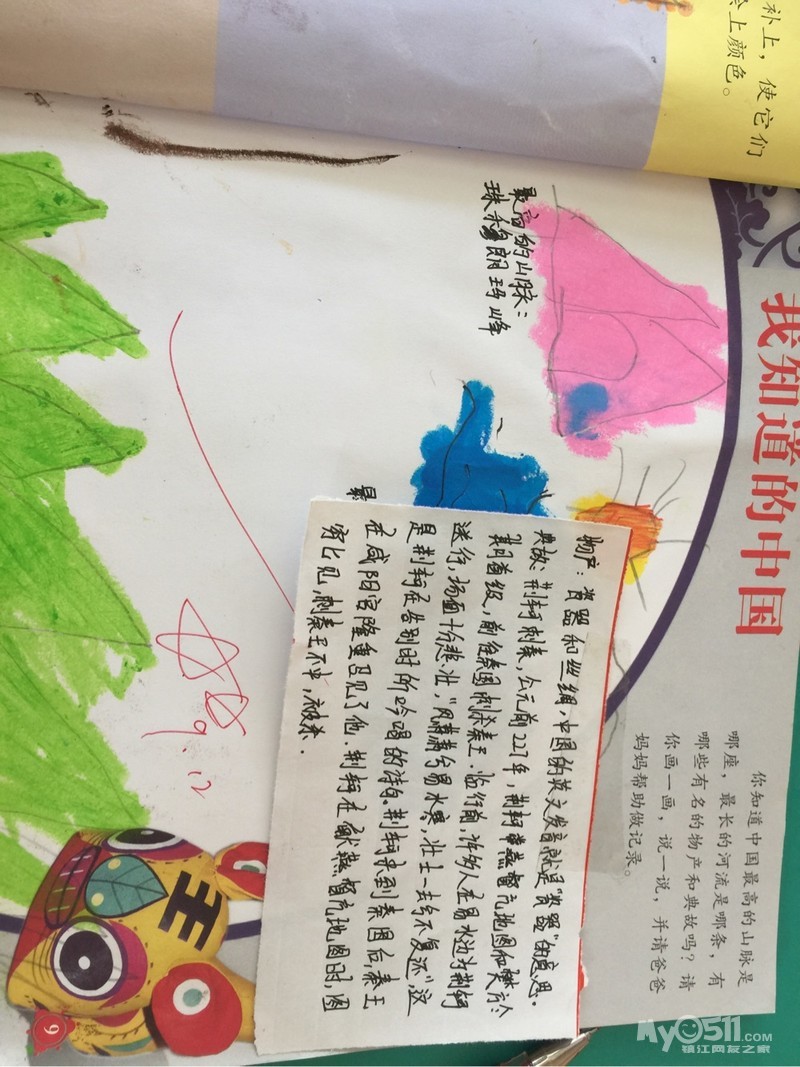 补上，使它们
上颜色。
我知道的中国
你知道中国最高的山脉是
哪座，最长的河流是哪条，有
哪些有名的物产和典故吗？请
你画一画，说一说，并请爸爸
妈妈帮助做记录。
最高的山脉：
珠穆朗玛峰
最
物产：瓷器和丝绸，中国的英文发音就是“瓷器”的意思。
典故：荆轲刺秦，公元前227年，荆轲带燕督亢地图和樊於
期首级，前往秦国刺杀秦王。临行前，许多人在易水边为荆轲
送行，场面十分悲壮，“风萧萧兮易水寒，壮士一去兮不复还”，这
是荆轲在告别时所吟唱的诗句。荆轲来到秦国后，秦王
在咸阳宫隆重召见了他，荆轲在献燕督亢地图时，图
穷匕见，刺秦王不中，被杀．
9.12
王
9
My0511.COM
镇江网友之家